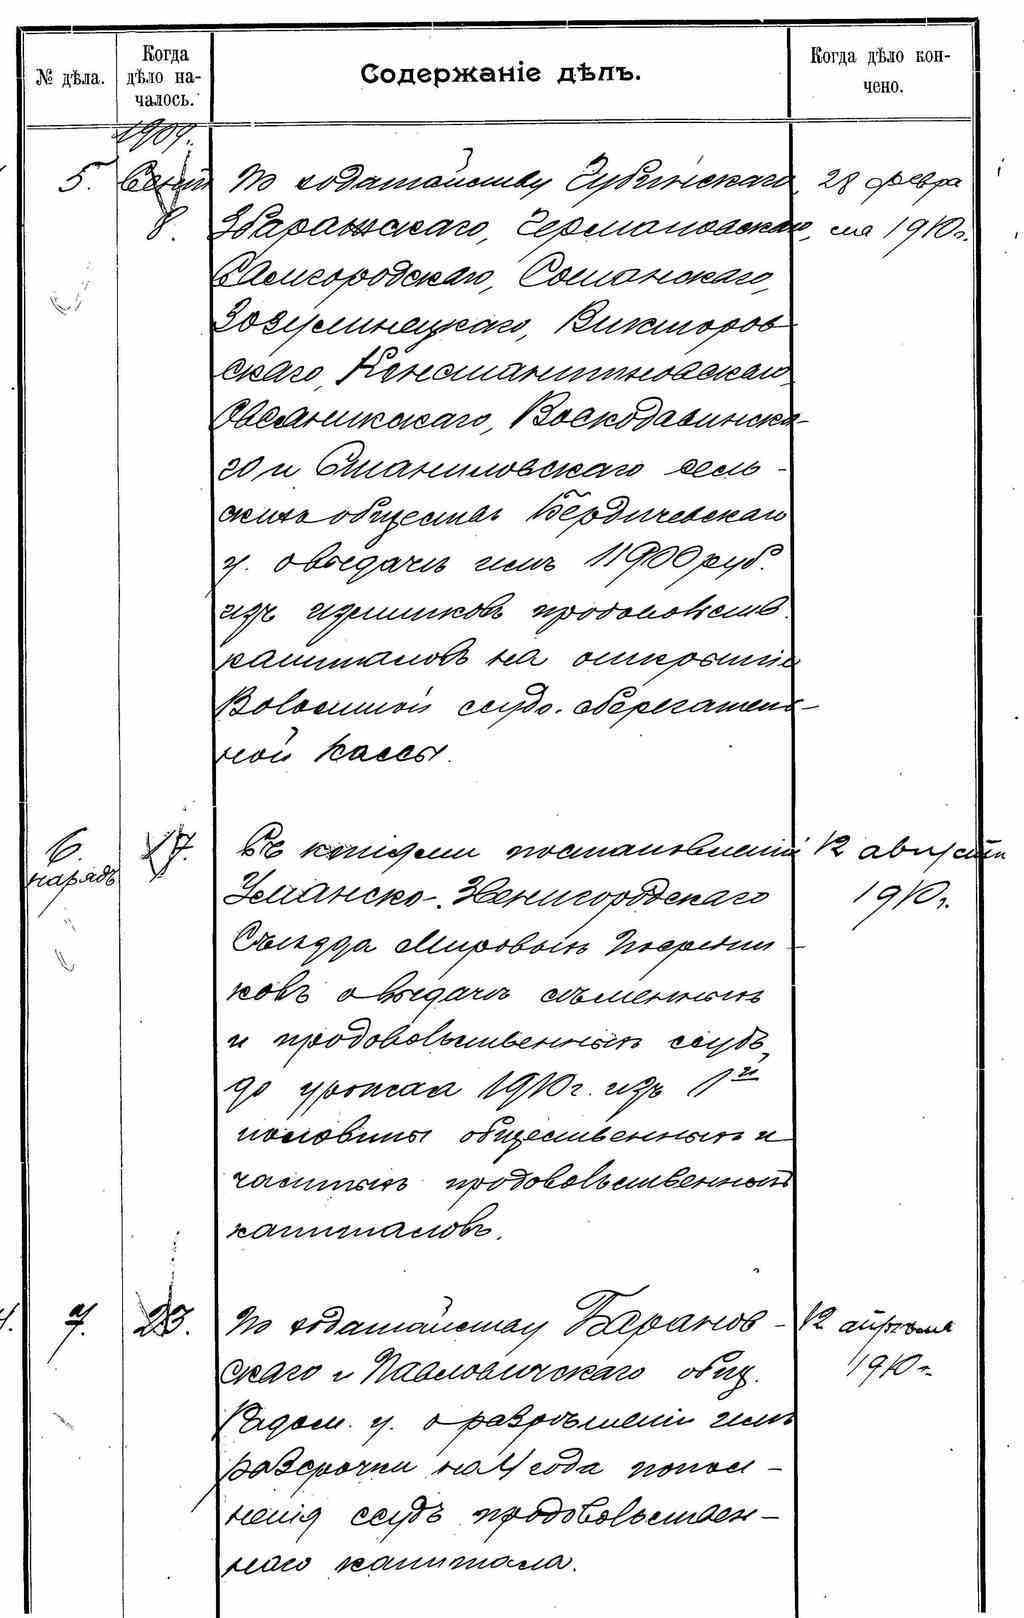 № дѣла.
Когда дѣло на-
чалось.
Содержаніе дѣлъ.
Когда дѣло кон-
чено.
1909.
5. Сент 8.
По ходатайству Чубинскаго,
Збаражскаго, Чермоповскаго,
Самгородскаго, Сошанскаго,
Зозулинецкаго, Викторов
скаго, Константиновскаго,
Овсяникскаго, Воскодавинска-
го и Спаниловскаго сель-
скихъ обществъ Бердичевскаго
у. о выдачѣ имъ 11900 руб.
изъ излишковъ продовольств.
капиталовъ на открытіе
Волостной ссудо-сберегатель-
ной кассы.
28 февра
ля 1910 г.
6.
нарядъ
17.
Съ копіями постановленій
Уманско-Звенигородскаго
Съѣзда Мировыхъ Посредни-
ковъ о выдачѣ сѣменныхъ
и продовольственныхъ ссудъ
до урожая 1910 г. изъ 1й
половины общественныхъ и
частныхъ продовольственныхъ
капиталовъ.
12 августа
1910 г.
7.
23.
По ходатайству Баранов-
скаго и Павловичскаго общ.
Радом. у. о разрѣшеніи имъ
разсрочки на 4 года попол-
ненія ссудъ продовольствен-
наго капитала.
12 апрѣля
1910 г.